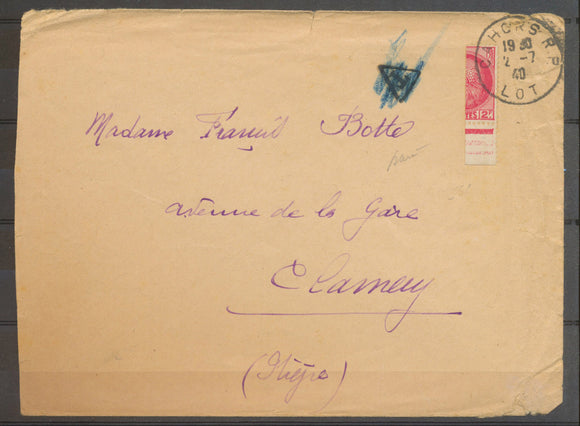 CAHORS R.P
19 30
2 -7
40
LOT
2f
Madame Botte
avenue de la Gare
Clamecy
(Nièvre)